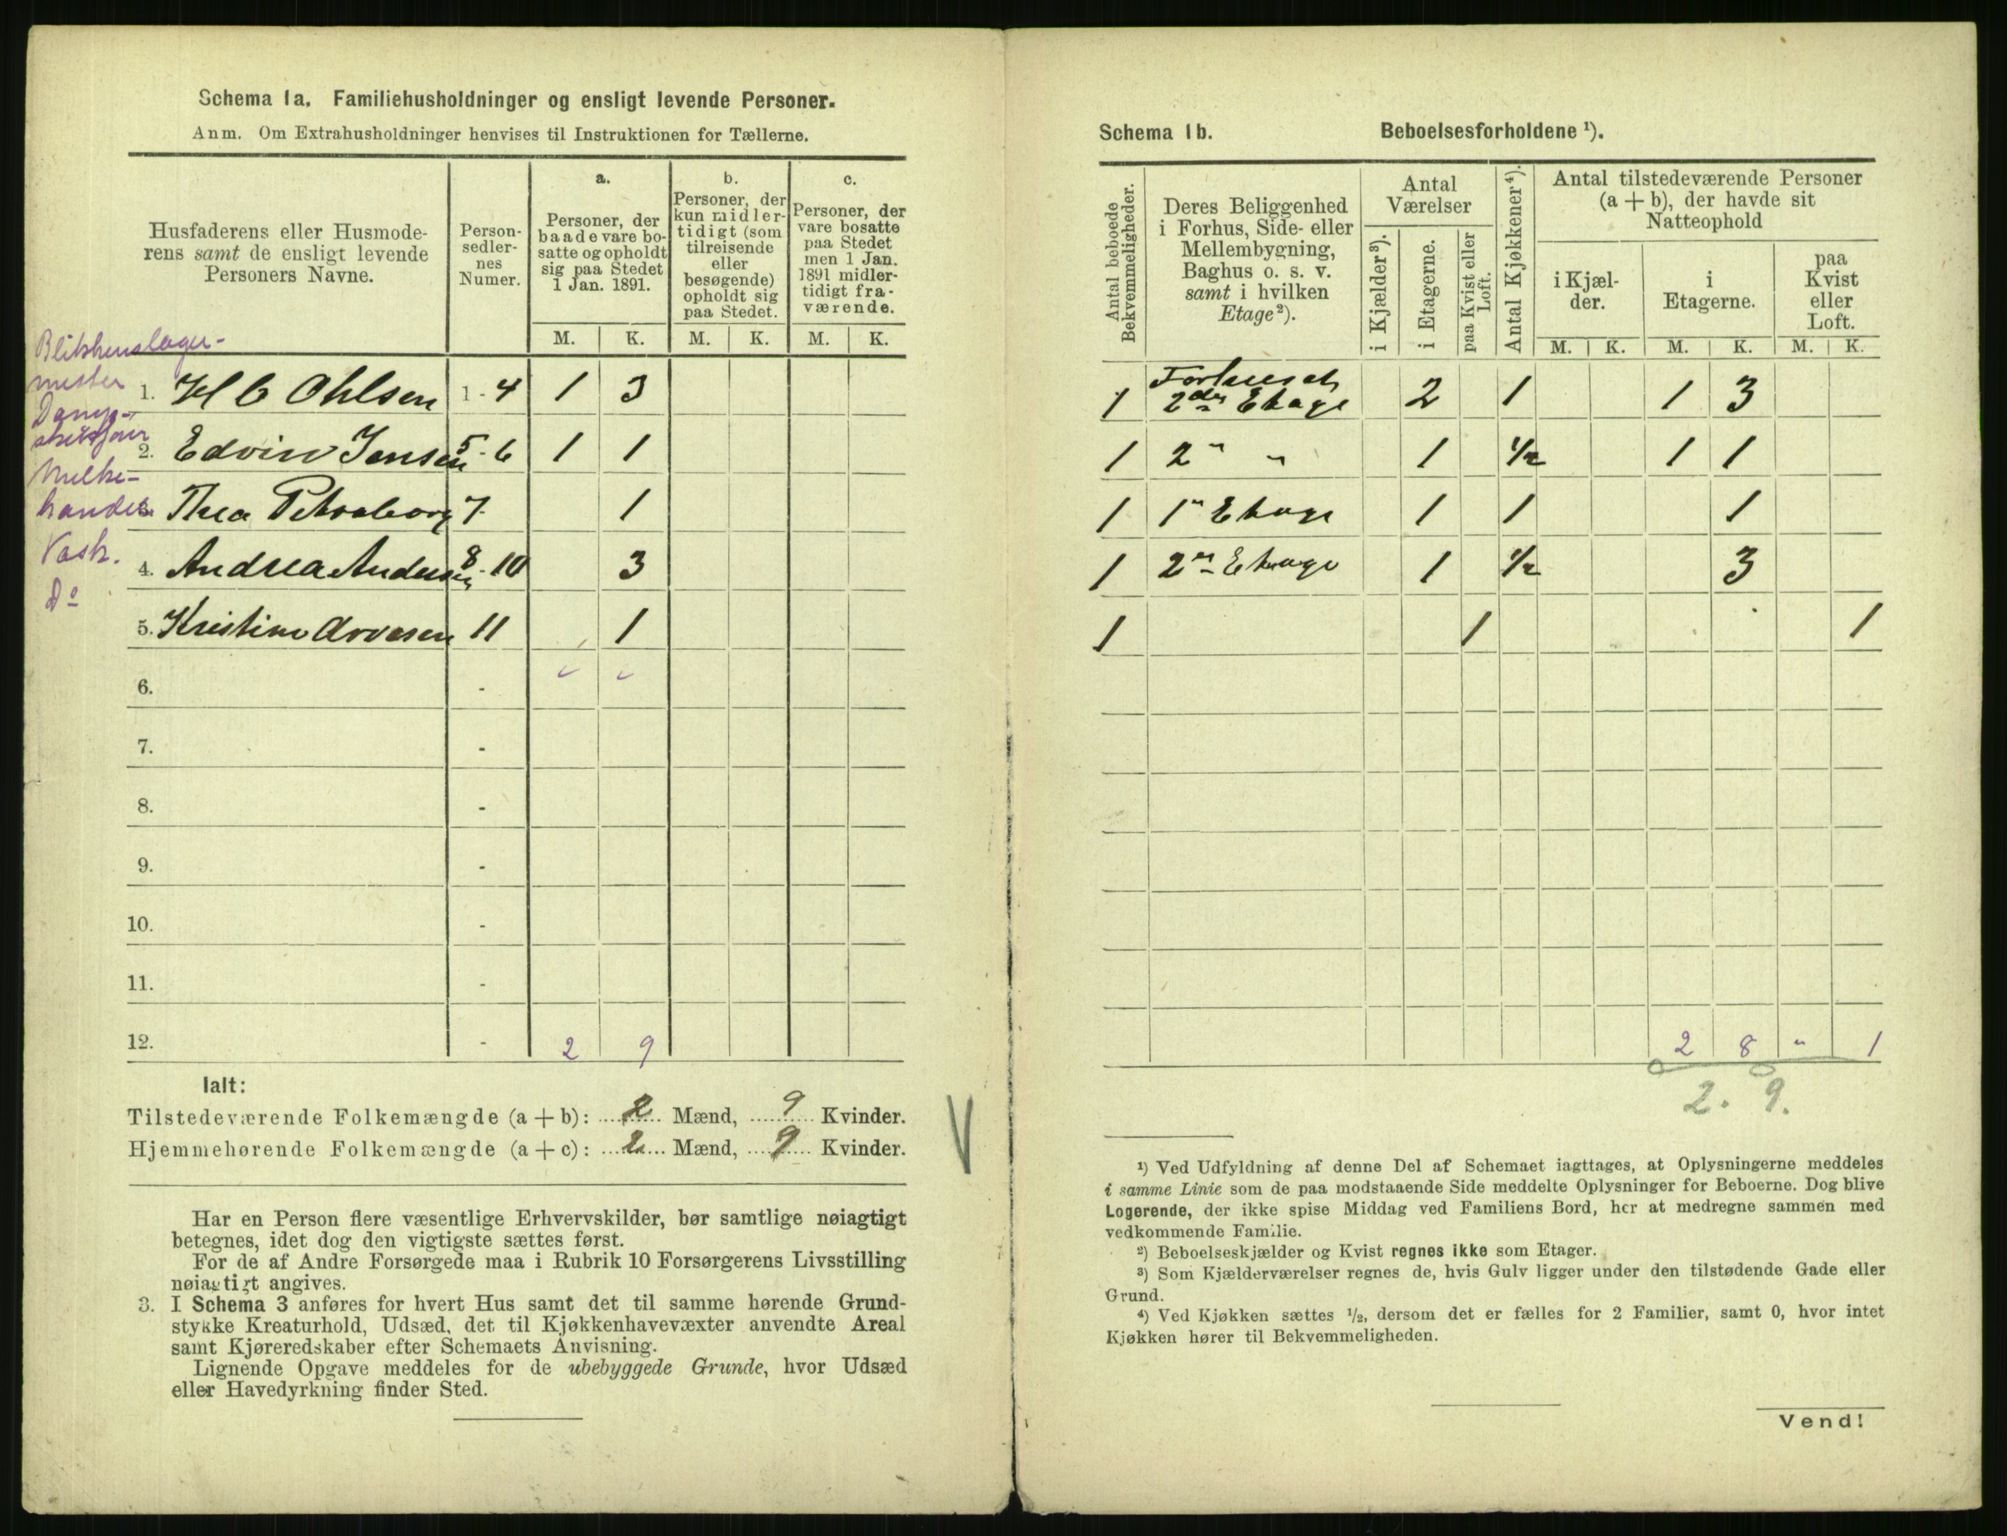 Schema 1a. Familiehusholdninger og ensligt levende Personer.
Anm. Om Extrahusholdninger henvises til Instruktionen for Tællerne.
Husfaderens eller Husmode-
rens samt de ensligt levende
Personers Navne.
Person-
sedler-
nes
Numer.
a.
Personer, der
baade vare bo-
satte og opholdt
sig paa Stedet
1 Jan. 1891.
b.
Personer, der
kun midler-
tidigt (som
tilreisende
eller
besøgende)
opholdt sig
paa Stedet.
c.
Personer, der
vare bosatte
paa Stedet
men 1 Jan.
1891 midler-
tidigt fra-
værende.
M. K. M. K. M. K.
Blikkenslager-
mester
1. H C Ohlsen 1 - 4 1 3
Damp-
2. Edvin Jensen 5 - 6 1 1
Melke-
handel
3. Thea Petraborg 7 - 1
Vask.
4. Andrea Andersen 8 - 10 3
Do
5. Kristine Arvesen 11 1
6. -
7. -
8. -
9. -
10. -
11. -
12. - 2 9
Ialt:
Tilstedeværende Folkemængde (a + b): 2 Mænd, 9 Kvinder.
Hjemmehørende Folkemængde (a + c): 2 Mænd, 9 Kvinder.
Har en Person flere væsentlige Erhvervskilder, bør samtlige nøiagtigt
betegnes, idet dog den vigtigste sættes først.
For de af Andre Forsørgede maa i Rubrik 10 Forsørgerens Livsstilling
nøiagtigt angives.
3. I Schema 3 anføres for hvert Hus samt det til samme hørende Grund-
stykke Kreaturhold, Udsæd, det til Kjøkkenhavevæxter anvendte Areal
samt Kjøreredskaber efter Schemaets Anvisning.
Lignende Opgave meddeles for de ubebyggede Grunde, hvor Udsæd
eller Havedyrkning finder Sted.
Schema 1b. Beboelsesforholdene ¹).
Antal beboede
Bekvemmeligheder.
Deres Beliggenhed
i Forhus, Side- eller
Mellembygning,
Baghus o. s. v.
samt i hvilken
Etage²).
Antal
Værelser
i Kjælder³).
i Etagerne.
paa Kvist eller
Loft.
Antal Kjøkkener⁴).
Antal tilstedeværende Personer
(a + b), der havde sit
Natteophold
i Kjæl-
der.
i
Etagerne.
paa
Kvist
eller
Loft.
M. K. M. K. M. K.
1 Forhuset 2den Etage 2 1 1 3
1 2 " " 1 ½ 1 1
1 1" Etage 1 1 1
1 2" Etage 1 ½ 3
1 1 1
2 8 " 1
2. 9.
¹) Ved Udfyldning af denne Del af Schemaet iagttages, at Oplysningerne meddeles
i samme Linie som de paa modstaaende Side meddelte Oplysninger for Beboerne. Dog blive
Logerende, der ikke spise Middag ved Familiens Bord, her at medregne sammen med
vedkommende Familie.
²) Beboelseskjælder og Kvist regnes ikke som Etager.
³) Som Kjælderværelser regnes de, hvis Gulv ligger under den tilstødende Gade eller
Grund.
⁴) Ved Kjøkken sættes ½, dersom det er fælles for 2 Familier, samt 0, hvor intet
Kjøkken hører til Bekvemmeligheden.
Vend!